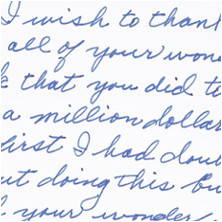 I wish to thank
all of your won
k that you did to
a million dollar
first I had dou
ut doing this bu
l your wonder